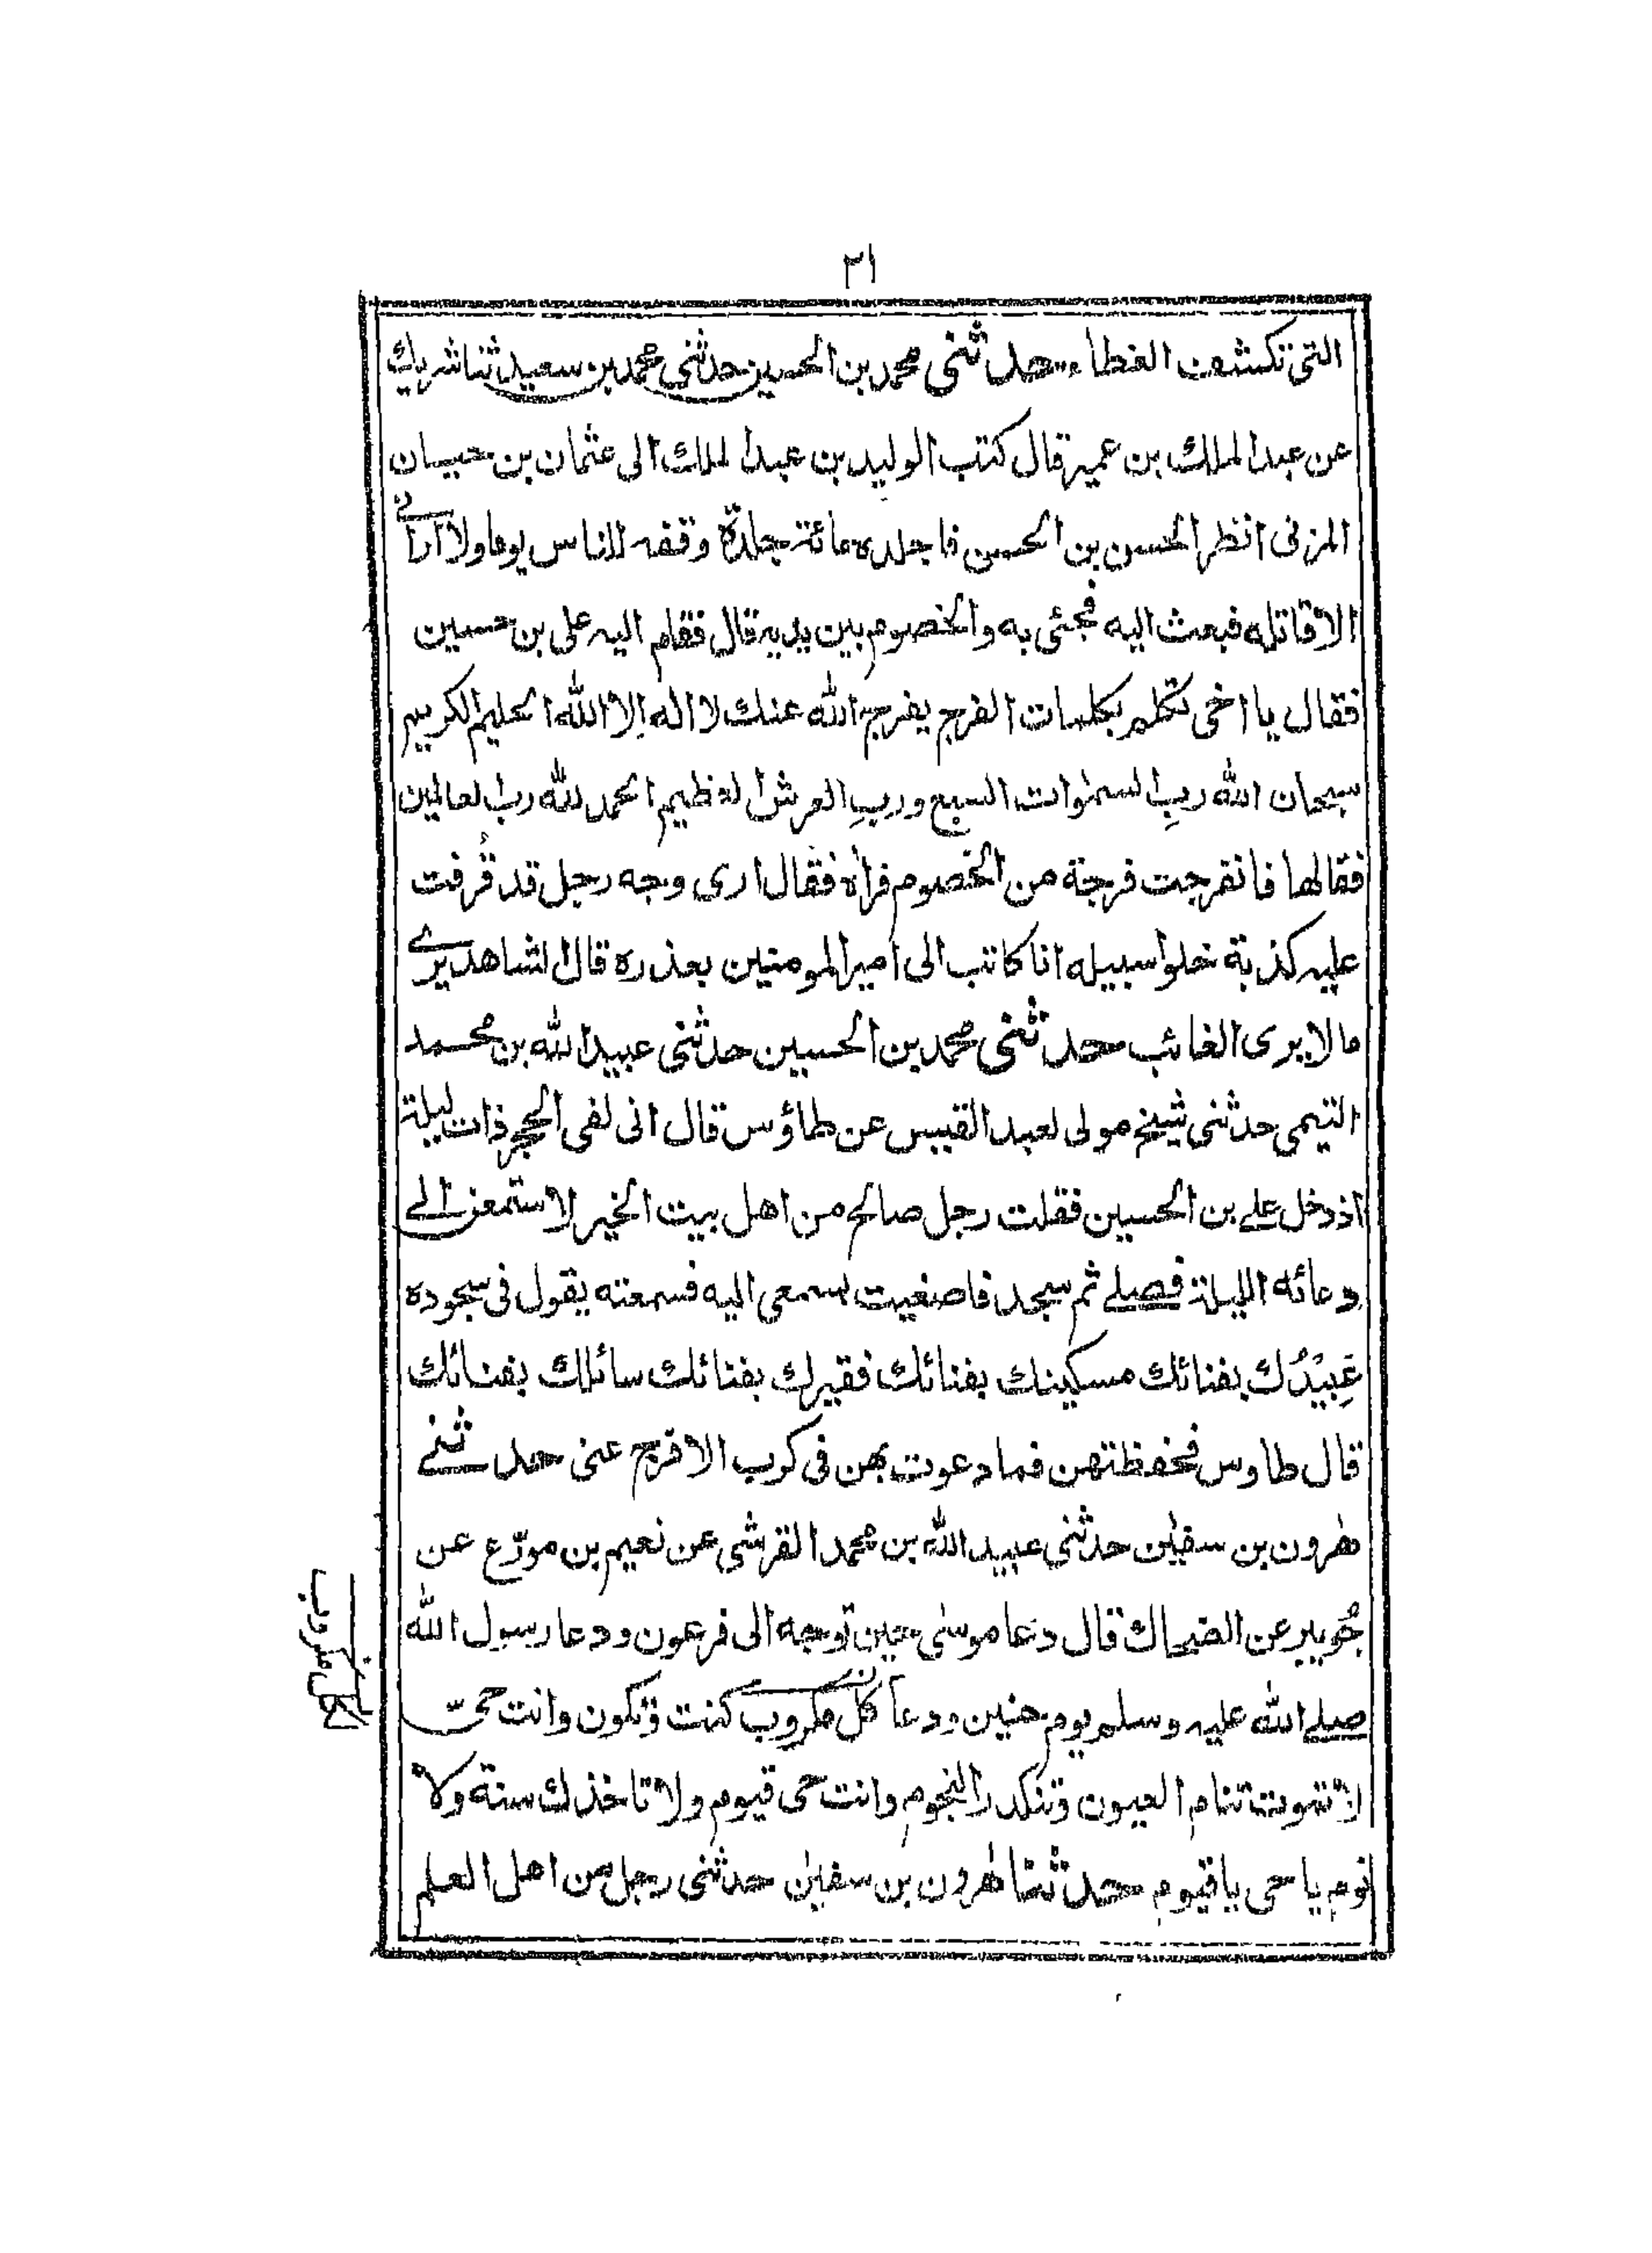 ٣١
التى تكشف الغطاء حدثنى محمد بن الحسين حدثنى محمد بن سعيد ثنا شريك
عن عبد الملك بن عمير قال كتب الوليد بن عبد الملك الى عثمان بن حيان
المزنى انظر الحسن بن الحسن فاجلده مائة جلدة وقفه للناس يوما ولا ارانى
الا قاتله فبعث اليه فجئى به والخصوم بين يديه قال فقام اليه على بن حسين
فقال يا اخى تكلم بكلمات الفرج يفرج الله عنك لا اله الا الله الحليم الكريم
سبحان الله ربِ السمٰوات السبع وربِ العرش العظيم الحمد لله رب العالمين
فقالها فانفرجت فرجة من الخصوم فرآه فقال ارى وجه رجل قد قُرفت
عليه كذبة خلوا سبيله انا كاتب الى امير المومنين بعذره قال الشاهد يرے
ما لا يرى الغائب حدثنى محمد بن الحسين حدثنى عبيد الله بن محمد
التيمى حدثنى شيخ مولى لعبد القيس عن طاؤس قال انى لفى الحجر ذات ليلة
اذ دخل علے بن الحسين فقلت رجل صالح من اهل بيت الخير لاستمعن الے
دعائه الليلة فصلے ثم سجد فاصغيت بسمعى اليه فسمعته يقول فى سجوده
عُبَيْدُك بفنائك مسكينك بفنائك فقيرك بفنائك سائلك بفنائك
قال طاوس فحفظتهن فما دعوت بهن فى كرب الا فرج عنى حدثنے
هٰرون بن سفيٰن حدثنى عبيد الله بن محمد القرشى عن نعيم بن مورّع عن
جُويبر عن الضحاك قال دعا موسٰى حين توجه الى فرعون ودعا رسول الله
صلے الله عليه وسلم يوم حنين ودعآ كل مكروب كنت وتكون وانت حىّ
لا تموت تنام العيون وتنكدر النجوم وانت حى قيوم ولا تاخذك سنة ولا
نوم يا حى يا قيوم حدثنا هٰرون بن سفيٰن حدثنى رجل من اهل العلم